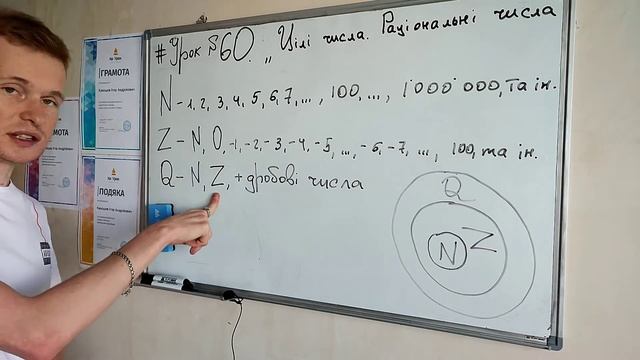 #Урок №60. „Цілі числа. Раціональні числа
N - 1, 2, 3, 4, 5, 6, 7, ..., 100, ..., 1'000'000, та ін.
Z - N, 0, -1, -2, -3, -4, -5, ..., -6, -7, ..., 100, та ін.
Q - N, Z, + дробові числа
Q
Z
N
ГРАМОТА
МОТА
ПОДЯКА